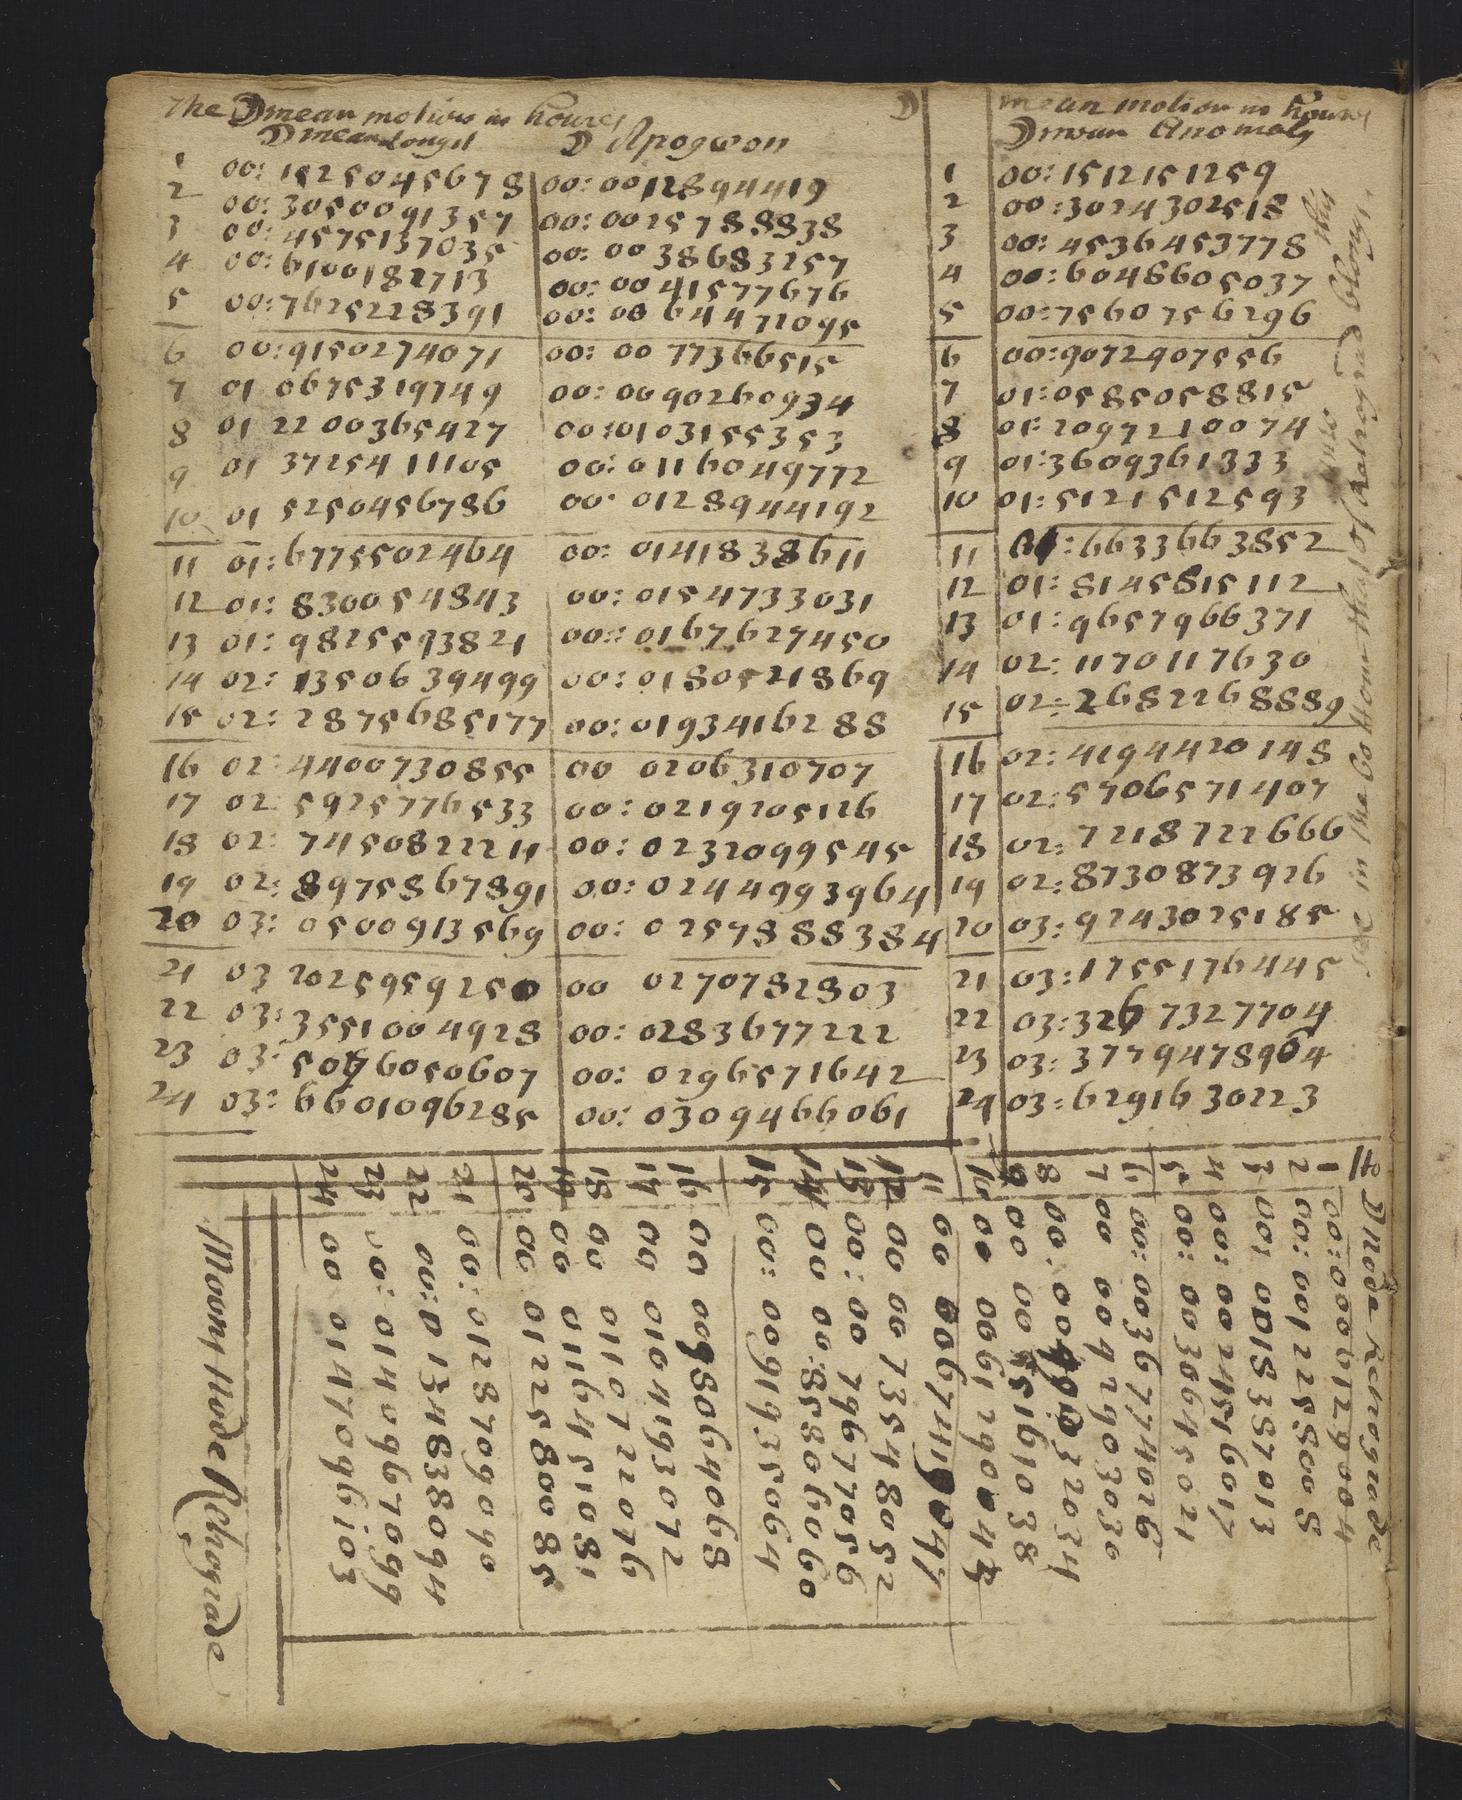 The ☽ mean motion in houres
☽ mean Longit ☽ Apogæon
☽ mean motion in houres
☽ mean Anomaly
1 00: 1525045678 00: 0012894419 1 00: 1512151259
2 00: 3050091357 00: 0025788838 2 00: 3024302518
3 00: 4575137035 00: 0038683257 3 00: 4536453778
4 00: 6100182713 00: 0041577676 4 00: 6048605037
5 00: 7625228391 00: 0064472095 5 00: 7560756296
6 00: 9150274071 00: 0077366515 6 00: 9072907556
7 01 0675319749 00: 0090260934 7 01: 0585058815
8 01 2200365427 00: 0103155353 8 01: 2097210074
9 01 3725411105 00: 0116049772 9 01: 3609361333
10 01 5250456786 00: 0128944192 10 01: 5121512593
11 01: 6775502464 00: 0141838611 11 01: 6633663852
12 01: 830054843 00: 0154733031 12 01: 8145815112
13 01: 9825593821 00: 0167627450 13 01: 9657966371
14 02: 1350639499 00: 0180521869 14 02: 1170117630
15 02: 2875685177 00: 0193416288 15 02: 2682268889
16 02: 4400730855 00 0206310707 16 02: 4194420148
17 02 5925776533 00: 0219205126 17 02: 5706571407
18 02: 7450822211 00: 0232099545 18 02: 7218722666
19 02: 8975867891 00: 0244993964 19 02: 8730873926
20 03: 0500913569 00: 0257888384 20 03: 9243025185
21 03 2025959250 00 0270782803 21 03: 1755176445
22 03: 3551004928 00: 0283677222 22 03: 3267327704
23 03: 5076050607 00: 0296571642 23 03: 3779478964
24 03: 6601096285 00: 0309466061 24 03: 6291630223
see in the bottome that of Retrograd belongs
unto this
☽ Node Retrograde
1 00: 0006129004
2 00: 0012258008
3 00: 0018387013
4 00: 0024516017
5 00: 0030645021
6 00: 0036774026
7 00 0042903030
8 00: 0049032034
9 00 0055161038
10 00 0061290042
11 00 0067419047
12 00 0073548052
13 00: 0079677056
14 00 0085806060
15 00: 0091935064
16 00 0098064068
17 00 0104193072
18 00 0110722076
19 00 0116451081
20 00 0122580085
21 00: 0128709090
22 00: 0134838094
23 00: 0140967099
24 00 0147096103
Moons Node Rethograde